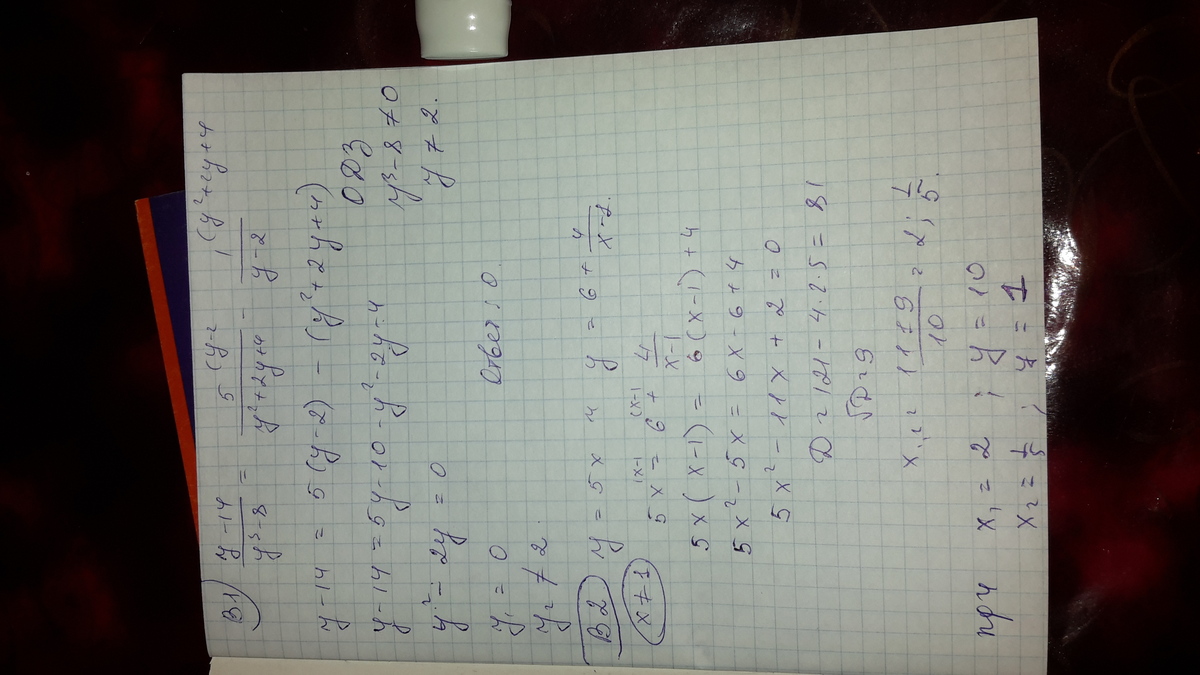 В1) (y-14)/(y³-8) = 5 (y-2 / (y²+2y+4) - 1 (y²+2y+4 / (y-2)
y-14 = 5(y-2) - (y²+2y+4)
ОДЗ
y-14 = 5y-10-y²-2y-4
y³-8 ≠ 0
y² - 2y = 0
y ≠ 2.
y₁ = 0
Ответ: 0.
y₂ ≠ 2.
В2) y = 5x и y = 6 + 4/(x-1).
x≠1
5x (x-1 = 6 (x-1 + 4/(x-1)
5x(x-1) = 6(x-1)+4
5x²-5x = 6x-6+4
5x²-11x+2=0
D=121-4·2·5=81
√D=9
x₁,₂ = (11±9)/10 = 2; 1/5.
при x₁ = 2 ; y = 10
x₂ = 1/5 ; y = 1